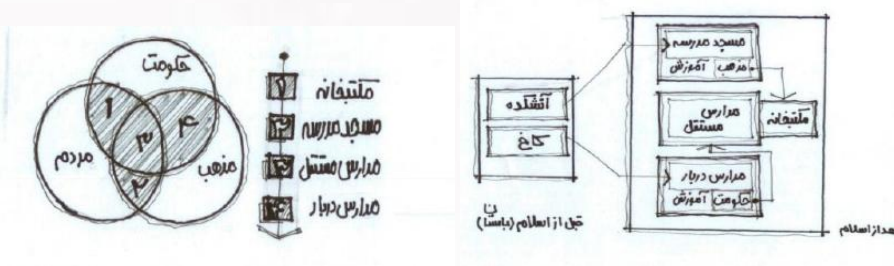 حکومت
مردم
مذهب
۱
۴
۳
۲
۱ مکتبخانه
۲ مسجد مدرسه
۳ مدارس مستقل
۴ مدارس دربار
آتشکده
کاخ
قبل از اسلام (باستان)
مسجد مدرسه
مذهب آموزش
مدارس مستقل
مکتبخانه
مدارس دربار
حکومت آموزش
بعد از اسلام